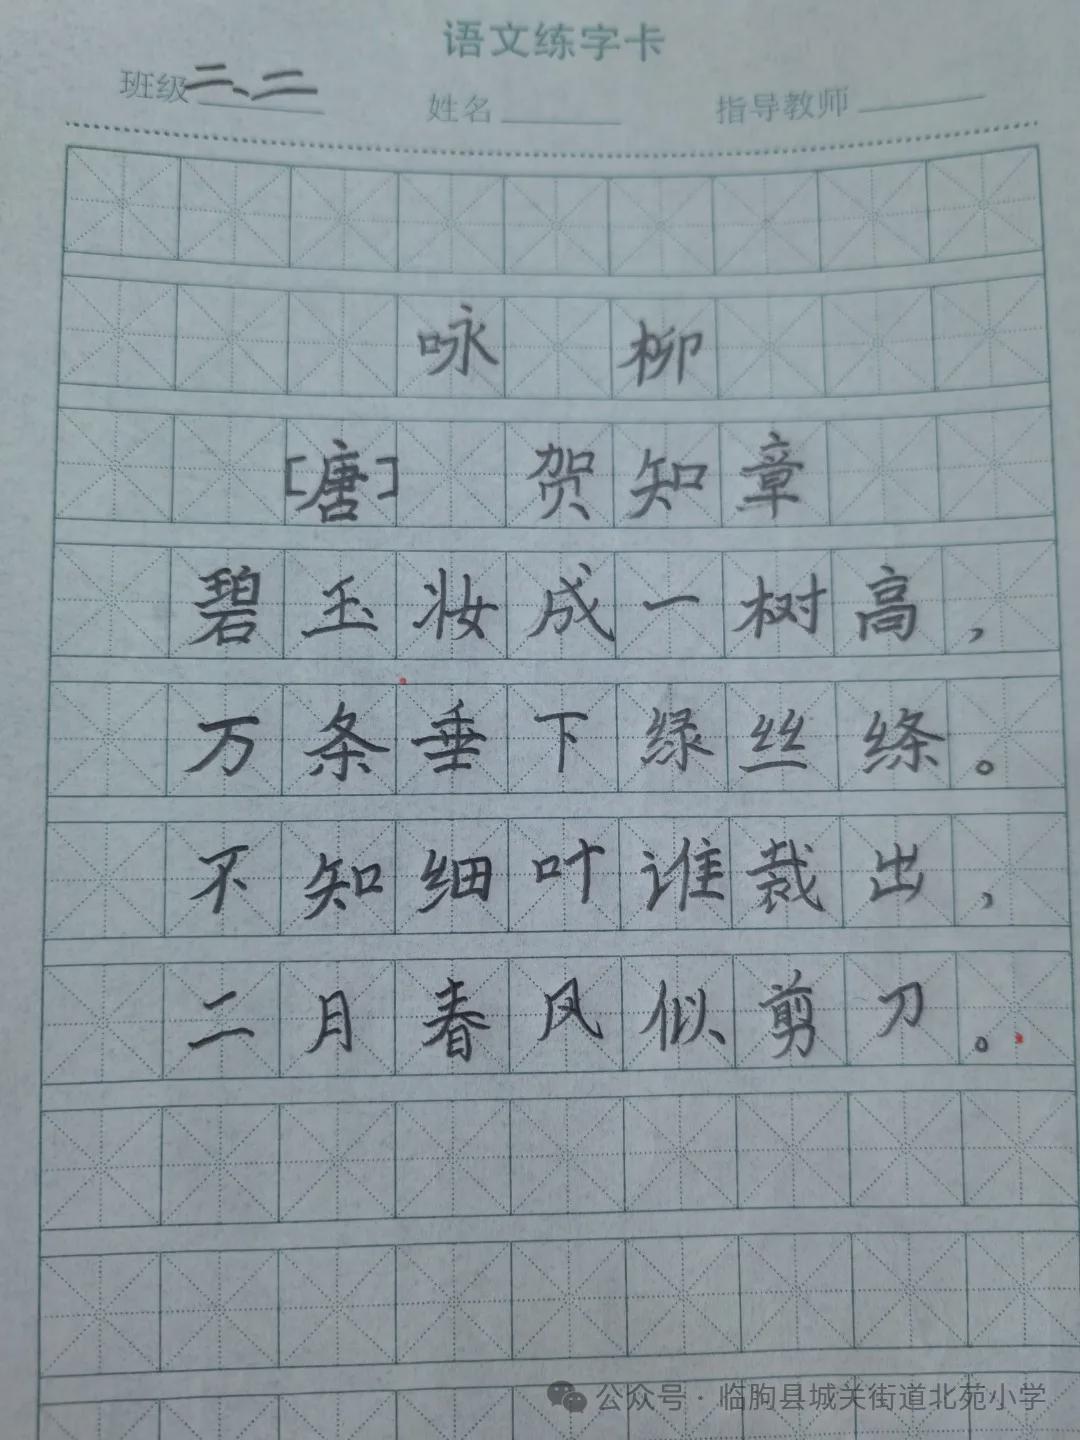 语文练字卡
班级 二、二 姓名 指导教师
咏 柳
[唐] 贺知章
碧玉妆成一树高，
万条垂下绿丝绦。
不知细叶谁裁出，
二月春风似剪刀。
公众号·临朐县城关街道北苑小学